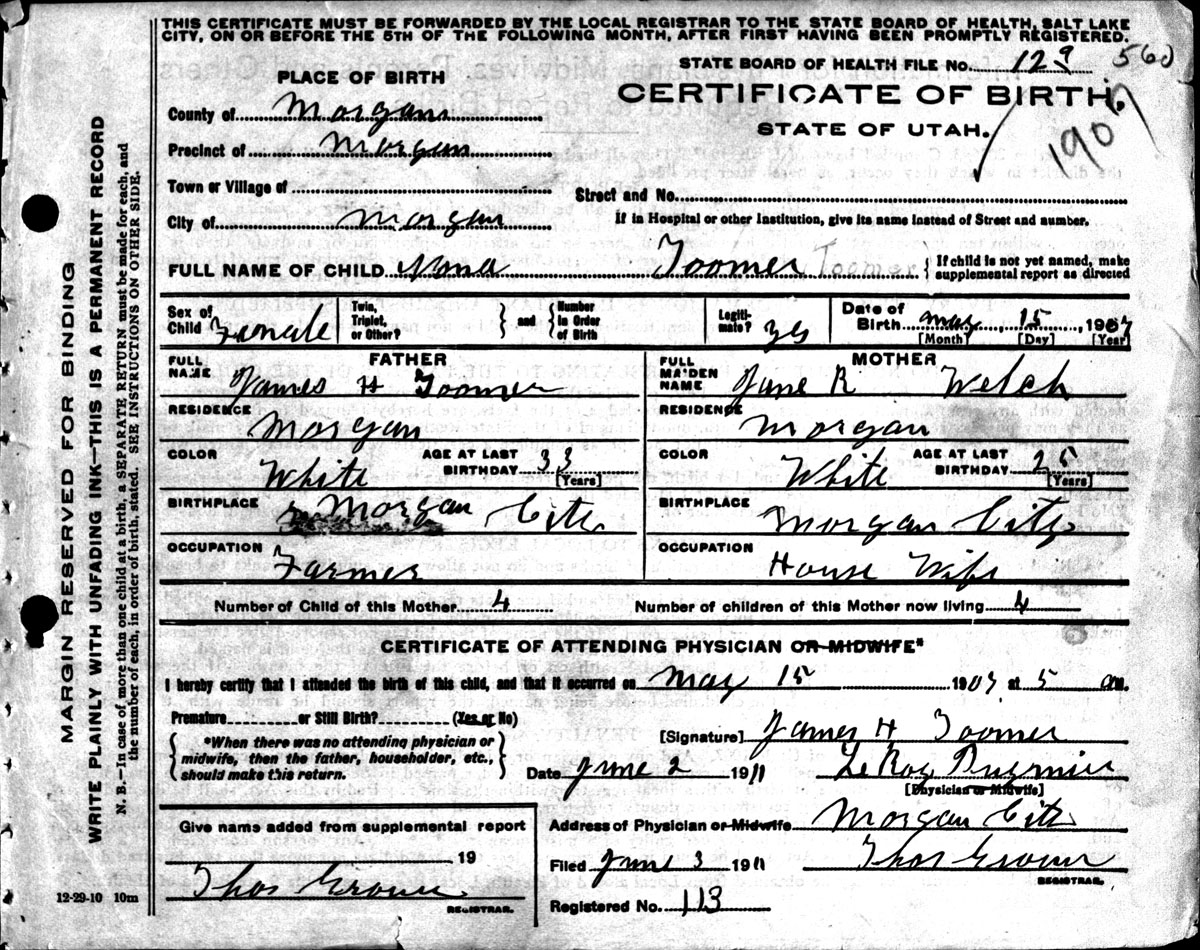 THIS CERTIFICATE MUST BE FORWARDED BY THE LOCAL REGISTRAR TO THE STATE BOARD OF HEALTH, SALT LAKE
CITY, ON OR BEFORE THE 5TH OF THE FOLLOWING MONTH, AFTER FIRST HAVING BEEN PROMPTLY REGISTERED.
STATE BOARD OF HEALTH FILE No. 129 560
PLACE OF BIRTH
CERTIFICATE OF BIRTH.
County of Morgan
STATE OF UTAH.
1907
Precinct of Morgan
Town or Village of
Street and No.
City of Morgan
If in Hospital or other Institution, give its name instead of Street and number.
FULL NAME OF CHILD Toomer Toomer { If child is not yet named, make
supplemental report as directed
Sex of Child Female
Twin, Triplet, or Other? } and { Number in Order of Birth
Legiti-mate? Yes
Date of Birth May 15, 1907
[Month] [Day] [Year]
FATHER
FULL NAME James H Toomer
MOTHER
FULL MAIDEN NAME Jane R Welch
RESIDENCE Morgan
RESIDENCE Morgan
COLOR White AGE AT LAST BIRTHDAY 33 [Years]
COLOR White AGE AT LAST BIRTHDAY 25 [Years]
BIRTHPLACE Morgan City
BIRTHPLACE Morgan City
OCCUPATION Farmer
OCCUPATION House Wife
Number of Child of this Mother 4 Number of children of this Mother now living 4
CERTIFICATE OF ATTENDING PHYSICIAN OR MIDWIFE*
I hereby certify that I attended the birth of this child, and that it occurred on May 15 1907 at 5 am.
Premature or Still Birth? (Yes or No)
*When there was no attending physician or
midwife, then the father, householder, etc.,
should make this return.
[Signature] James H Toomer
Date June 2 1911 LeRoy
[Physician or Midwife]
Give name added from supplemental report
19
Thos
REGISTRAR.
Address of Physician or Midwife Morgan City
Filed June 3 1911 Thos
REGISTRAR.
Registered No. 113
12-29-10 10m
MARGIN RESERVED FOR BINDING
WRITE PLAINLY WITH UNFADING INK—THIS IS A PERMANENT RECORD
N. B.—In case of more than one child at a birth, a SEPARATE RETURN must be made for each, and
the number of each, in order of birth, stated. SEE INSTRUCTIONS ON OTHER SIDE.